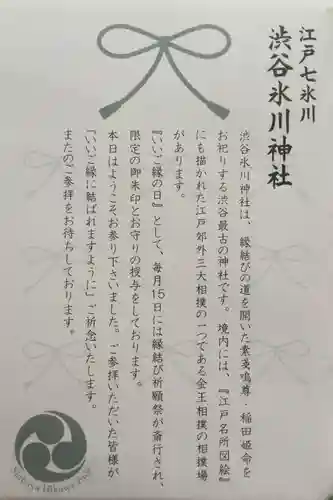 江戸七氷川
渋谷氷川神社
渋谷氷川神社は、縁結びの道を開いた素戔嗚尊・稲田姫命を
お祀りする渋谷最古の神社です。境内には、『江戸名所図絵』
にも描かれた江戸郊外三大相撲の一つである金王相撲の相撲場
があります。
『いいご縁の日』として、毎月15日には縁結び祈願祭が斎行され、
限定の御朱印とお守りの授与をしております。
本日はようこそお参り下さいました。ご参拝いただいた皆様が
『いいご縁に結ばれますように』ご祈念いたします。
またのご参拝をお待ちしております。
Shibuya Hikawa